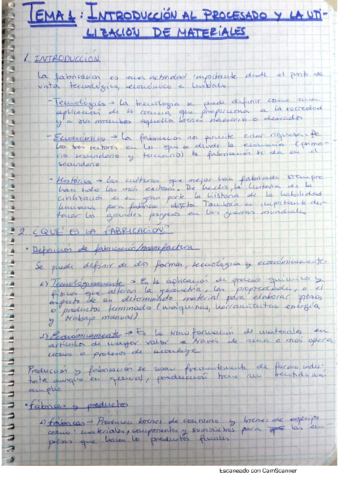 TEMA 1: INTRODUCCIÓN AL PROCESADO Y LA UTI-
LIZACIÓN DE MATERIALES.
1. INTRODUCCIÓN
La fabricación es una actividad importante desde el punto de
vista tecnológico, económico e histórico.
- Tecnológico → la tecnología se puede definir como una
aplicación de la ciencia que proporciona a la sociedad
y a sus miembros aquello que es necesario o deseado
- Económico → la fabricación permite crear riqueza. De
los tres sectores en los que se divide la economía (prima-
rio, secundario y terciario) la fabricación se da en el
secundario
- Histórico → las culturas que mejor han fabricado siempre
han sido las más exitosas. De hecho, la historia de la
civilización es en gran parte la historia de la habilidad
humana para fabricar objetos. También es importante
los grandes en las guerras mundiales.
2. ¿QUÉ ES LA FABRICACIÓN?
· Definición de fabricación/manufactura
Se puede definir de dos formas, tecnológica y económicamente:
a) Tecnológicamente → Es la aplicación de procesos químicos y
físicos que alteran la geometría, las propiedades, o el
aspecto de un determinado material para elaborar piezas
o productos terminados (máquinas, herramientas, energía
y trabajo manual)
b) Económicamente → Es la transformación de materiales en
artículos de mayor valor a través de una o más opera-
ciones o procesos de ensamblaje
Producción y fabricación se usan frecuentemente de forma indis-
tinta aunque en general, producción tiene un sentido más
amplio
· Fábricas y productos
a) Fábricas → Producen bienes de consumo y bienes de equipo
como: materiales, componentes y suministros para las em-
presas que hacen los productos finales
Escaneado con CamScanner